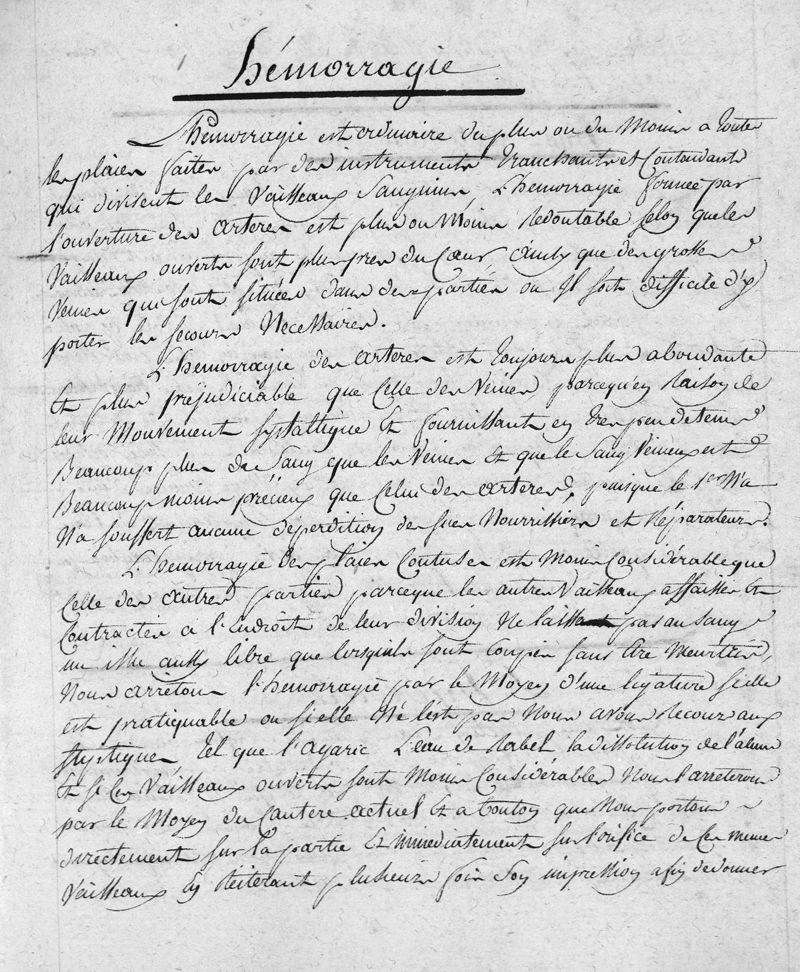 hémorragie
L'hémorragie est ordinaire du plus ou du Moins a toutes
les plaies faites par des instruments tranchants et Contondants
qui divisent les Vaisseaux Sanguins. L'hemorragie formée par
l'ouverture des arteres est plus ou Moins redoutable selon que les
Vaisseaux ouverts sont plus pres du Cœur ainsy que des grosses
Veines qui sont situées dans des parties ou Il soit difficile d'y
porter les secours Necessaires.
L'hemorragie des arteres est toujours plus abondante
et plus prejudiciable que Celle des Veines parcequ'en raison de
leur Mouvement systaltique et fournissants en tres peu de tems
Beaucoup plus de Sang que les Veines et que le Sang Veineux est
Beaucoup moins précieux que Celui des arteres, puisque le 1er N'a
N'a souffert aucune deperdition de sucs Nourrissiers et Réparateurs.
L'hemorragie des plaies Contuses est Moins Considérable que
Celle des autres parties parceque les autres Vaisseaux affaissés et
Contractés à l'Endroit de leur division Ne laissent pas au sang
un issu aussy libre que lorsquils sont Coupés sans être Meurtris,
Nous arretons l'hemorragie par le Moyen d'une ligature si elle
est pratiquable ou si elle Ne l'est pas Nous avons recours aux
styptiques tel que l'agaric L'eau de Rabel la dissolution de l'alun
et si Ces Vaisseaux ouverts sont Moins Considérables Nous l'arreterons
par le Moyen du Cautere actuel et a bouton que Nous portons
directement sur la partie et immediatement sur l'orifice de Ces memes
Vaisseaux En reiterant plusieurs fois son impression afin de donner